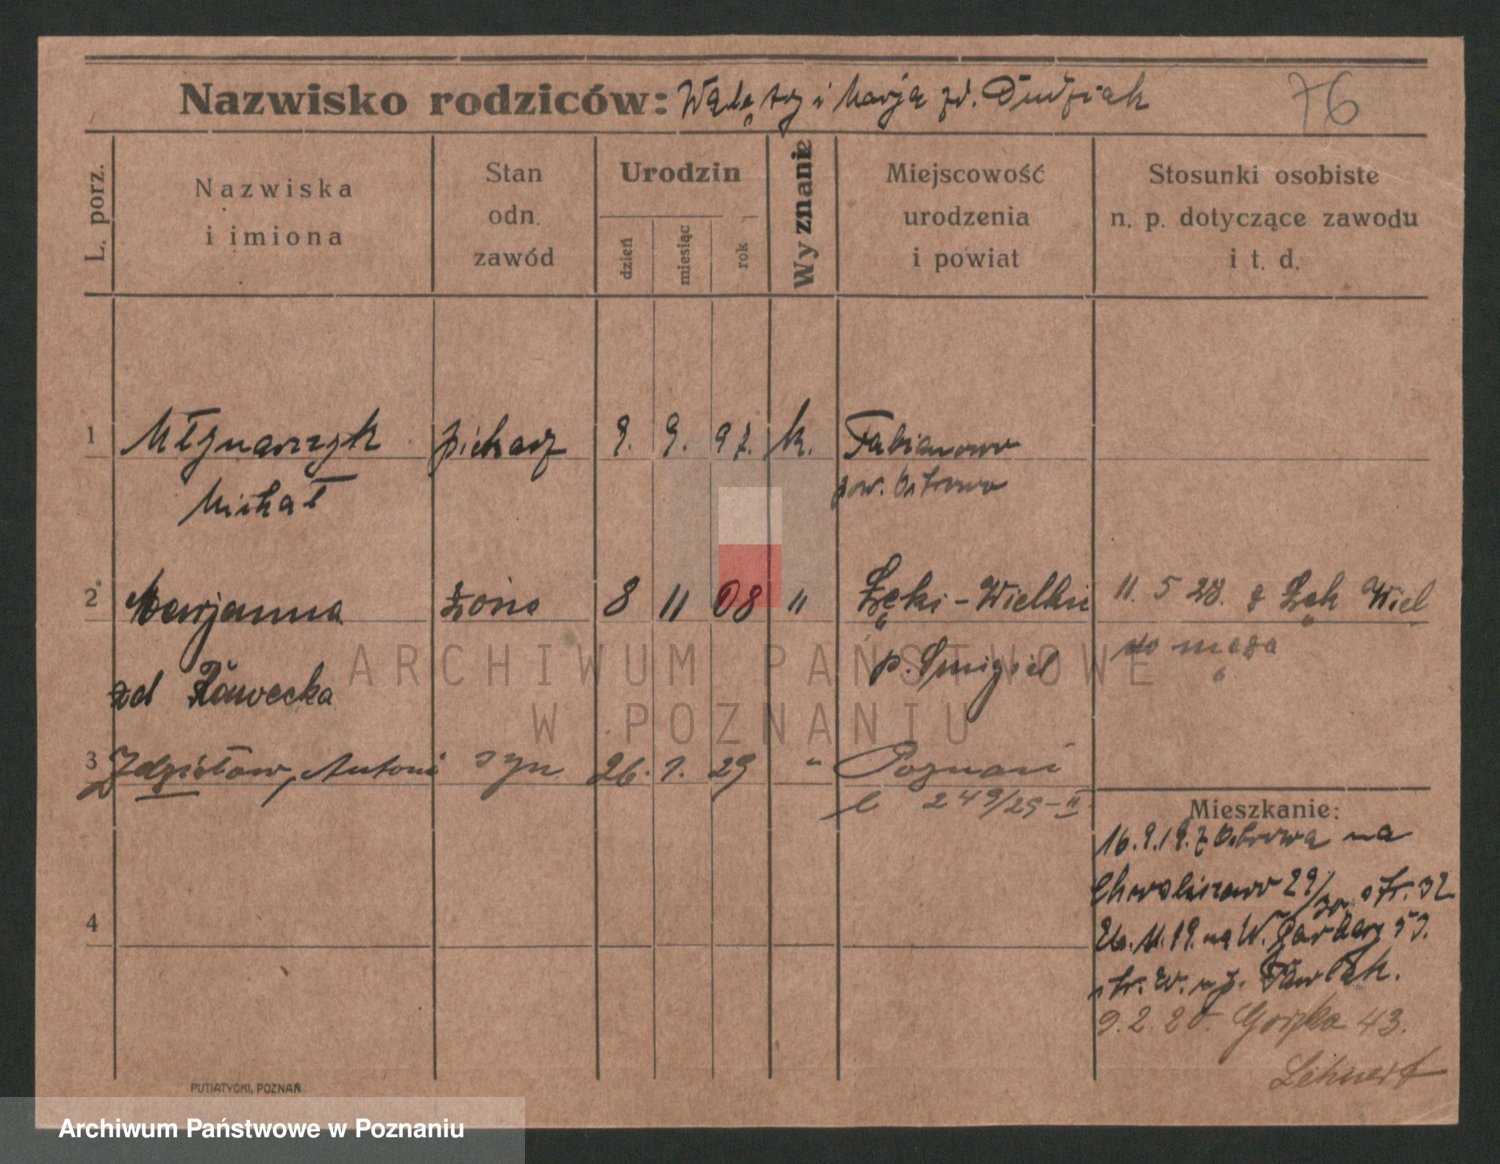 Nazwisko rodziców: i Marja zd. 76
L. porz.
Nazwiska
i imiona
Stan
odn.
zawód
Urodzin
dzień
miesiąc
rok
Wyznanie
Miejscowość
urodzenia
i powiat
Stosunki osobiste
n. p. dotyczące zawodu
i t. d.
1 Młynarczyk piekarz 9. 9. 97. k. Fabianowo
Michał pow. Ostrowo
2 Marjanna żona 8 11 08 " Łęki-Wielkie 11. 5 28. z Łęk Wiel
zd Ławecka p. Śmigiel do męża
3 Zdzisław, Antoni syn 26. 1. 29 " Poznań
249/29-II
Mieszkanie:
16.9.19. z Ostrowa na
Chwaliszewo 29/30. str. 32
26. 11. 19. na W. Garbary 53.
str. W. u p. Pawlak.
9.2.20. Gorzka 43.
4
ARCHIWUM PAŃSTWOWE
W POZNANIU
PUTIATYCKI, POZNAŃ
Archiwum Państwowe w Poznaniu